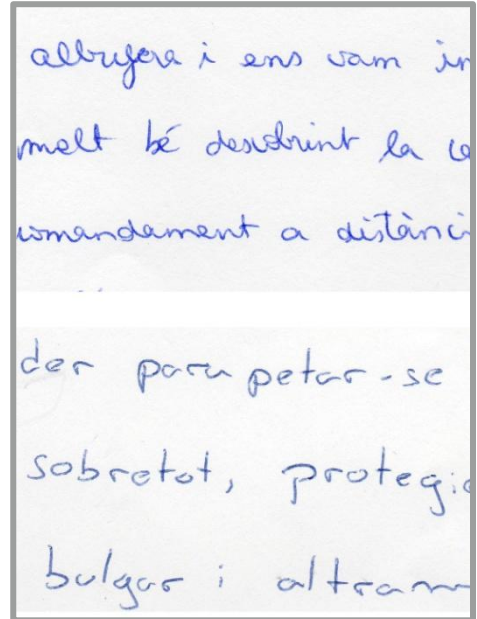 albufera i ens vam in
molt bé descobrint la ce
comandament a distànci
der parapetar-se
sobretot, protegid
bulgar i altram